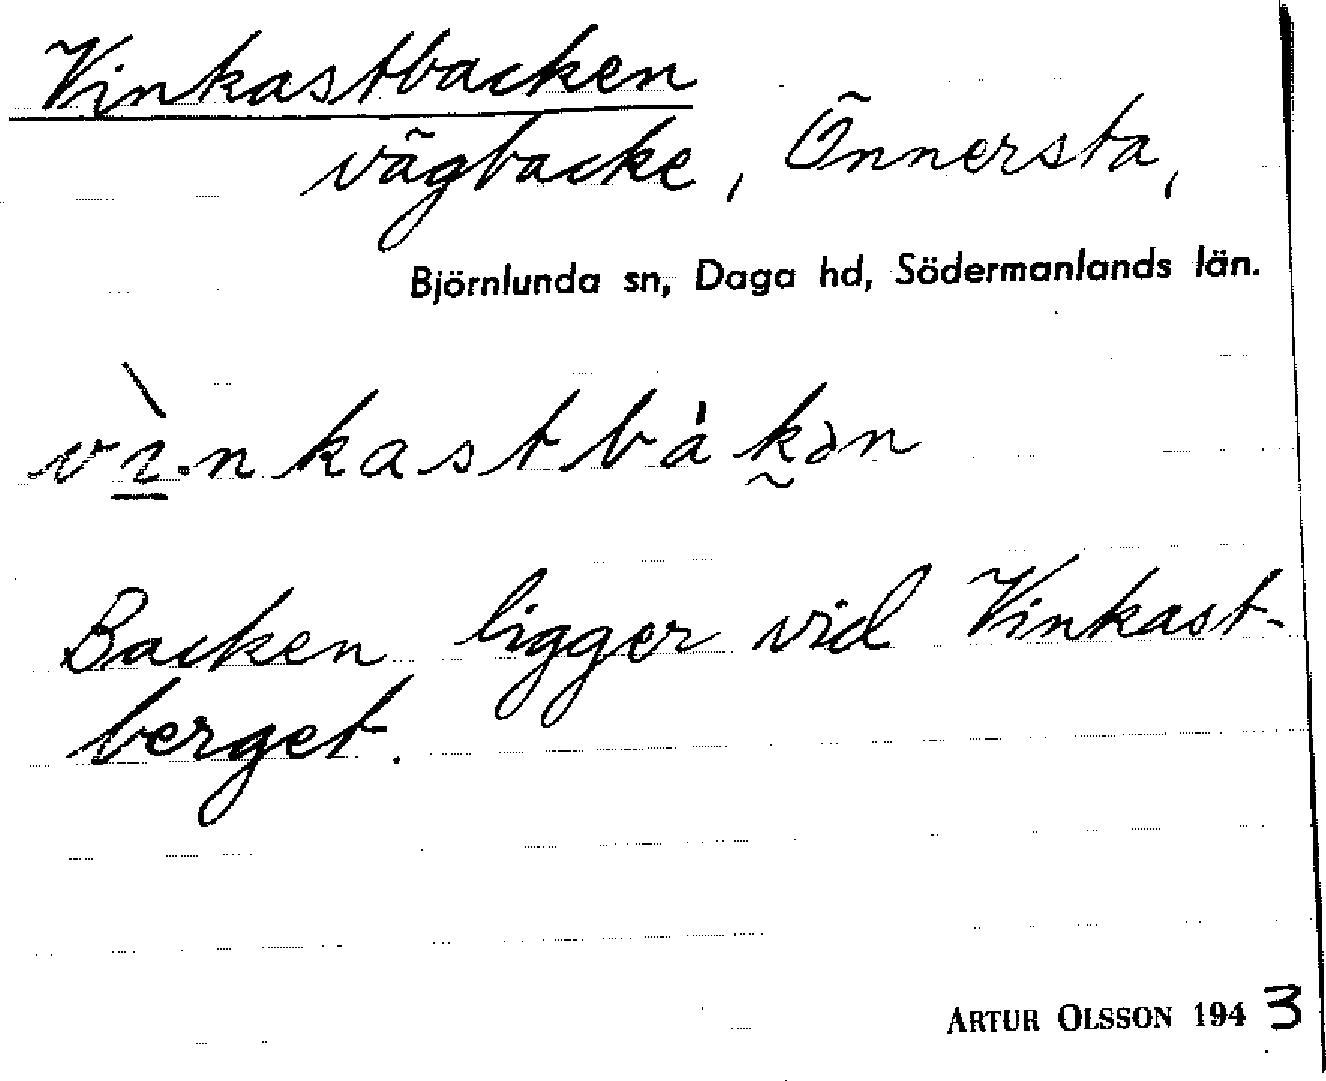 Vinkastbacken
vägbacke, Önnersta,
Björnlunda sn, Daga hd, Södermanlands län.
vì̱.nkastbàk̰ən
Backen ligger vid Vinkast-
berget.
ARTUR OLSSON 1943